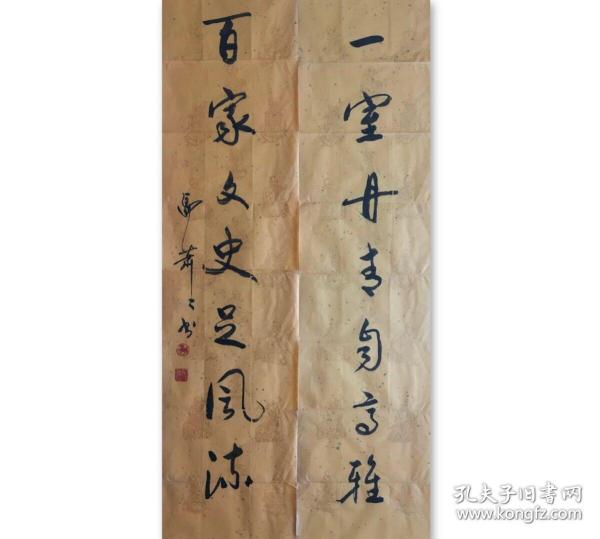 一室丹青自高雅
百家文史足风流
马萧萧书
孔夫子旧书网
www.kongfz.com